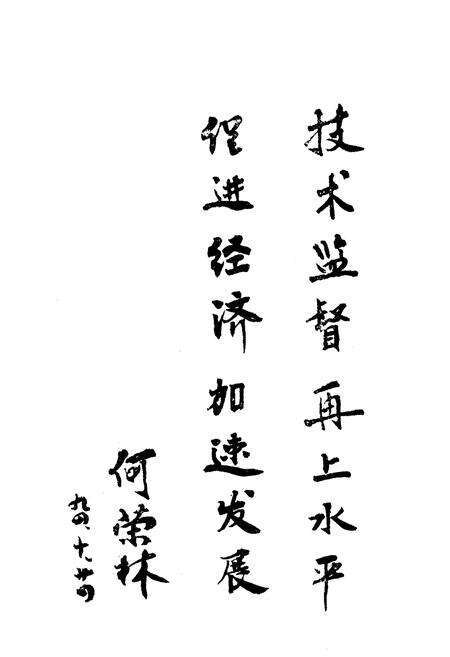 技术监督再上水平
促进经济加速发展
何荣林
九四、十、廿四